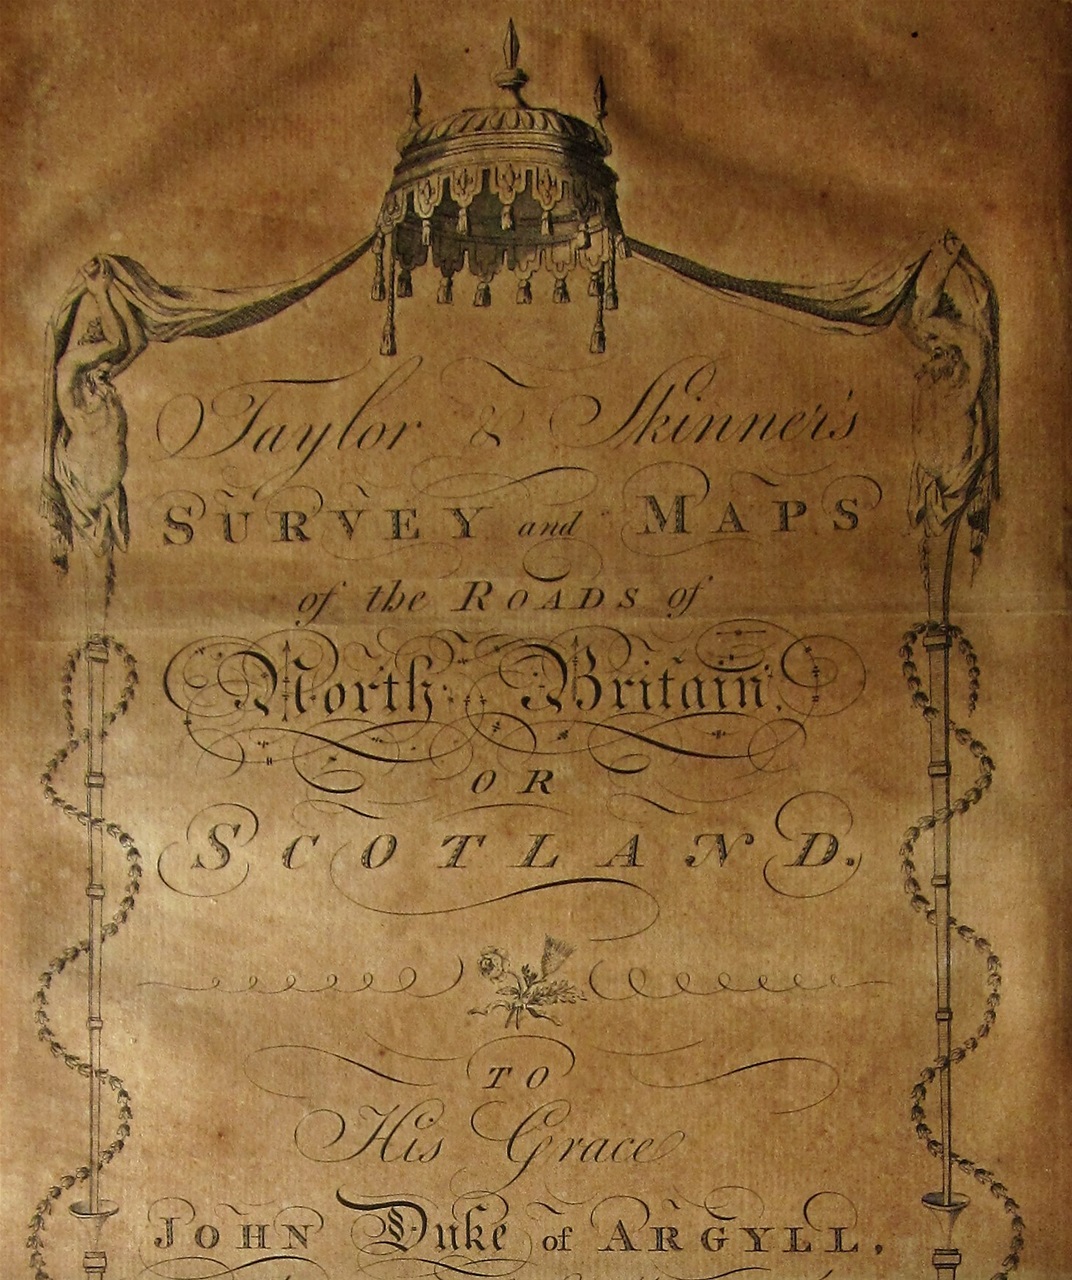 Taylor & Skinner's
SURVEY and MAPS
of the ROADS of
North Britain,
OR
SCOTLAND.
TO
His Grace
JOHN Duke of ARGYLL,